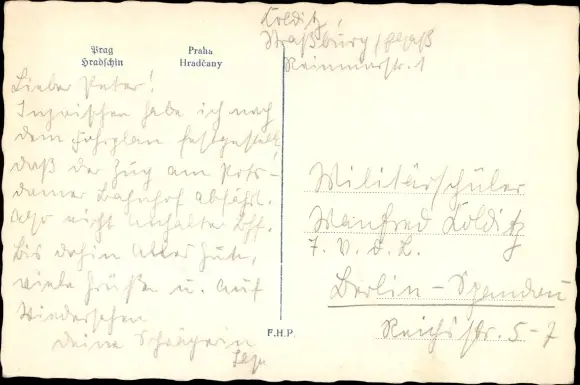 Colditz,
Straßburg / Elsaß
Reinmarstr. 1
Prag
Hradschin
Praha
Hradčany
Lieber Peter!
Inzwischen habe ich nach
dem Fahrplan festgestellt,
daß der Zug am Pots-
damer Bahnhof abfährt.
Also nicht Anhalter Bhf.
Bis dahin alles Gute,
viele Grüße u. auf
Wiedersehen
Deine
F.H.P.
Militärschüler
Manfred Colditz
7. V. d. L.
Berlin - Spandau
Reichsstr. 5-7